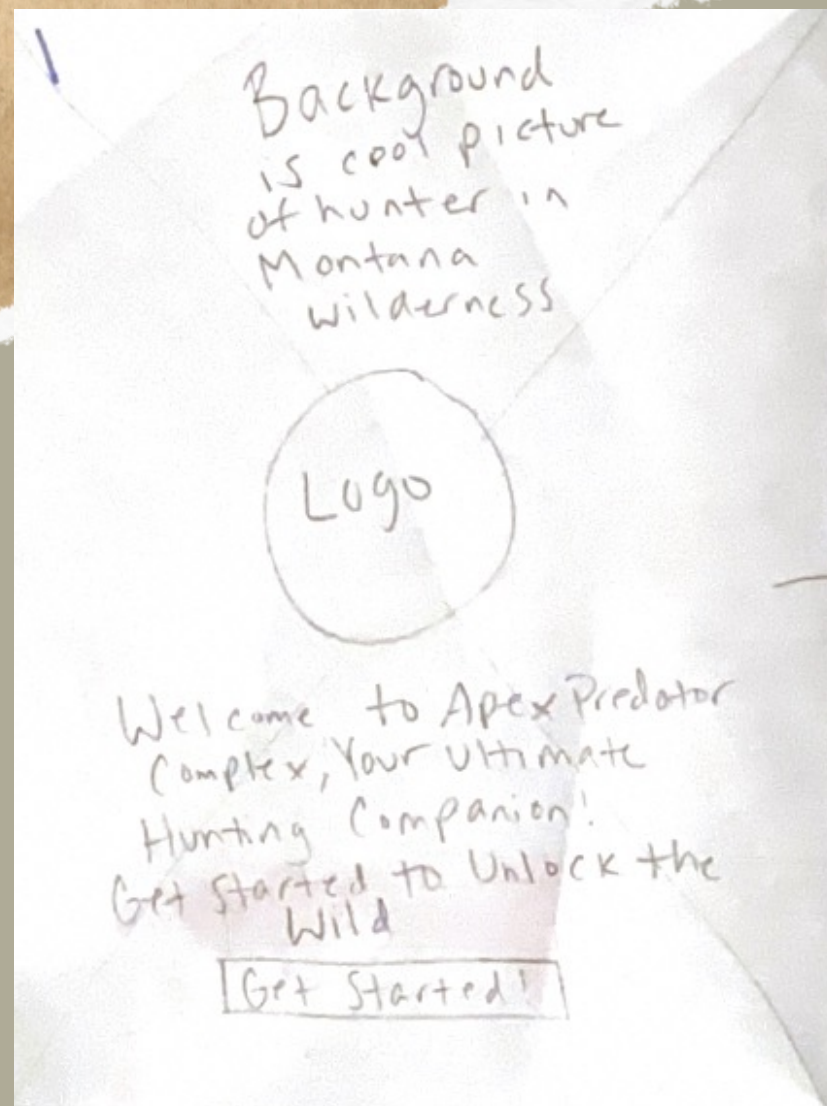 Background
is cool picture
of hunter in
Montana
wilderness
Logo
Welcome to Apex Predator
Complex, Your Ultimate
Hunting Companion!
Get Started to Unlock the
Wild
Get Started!